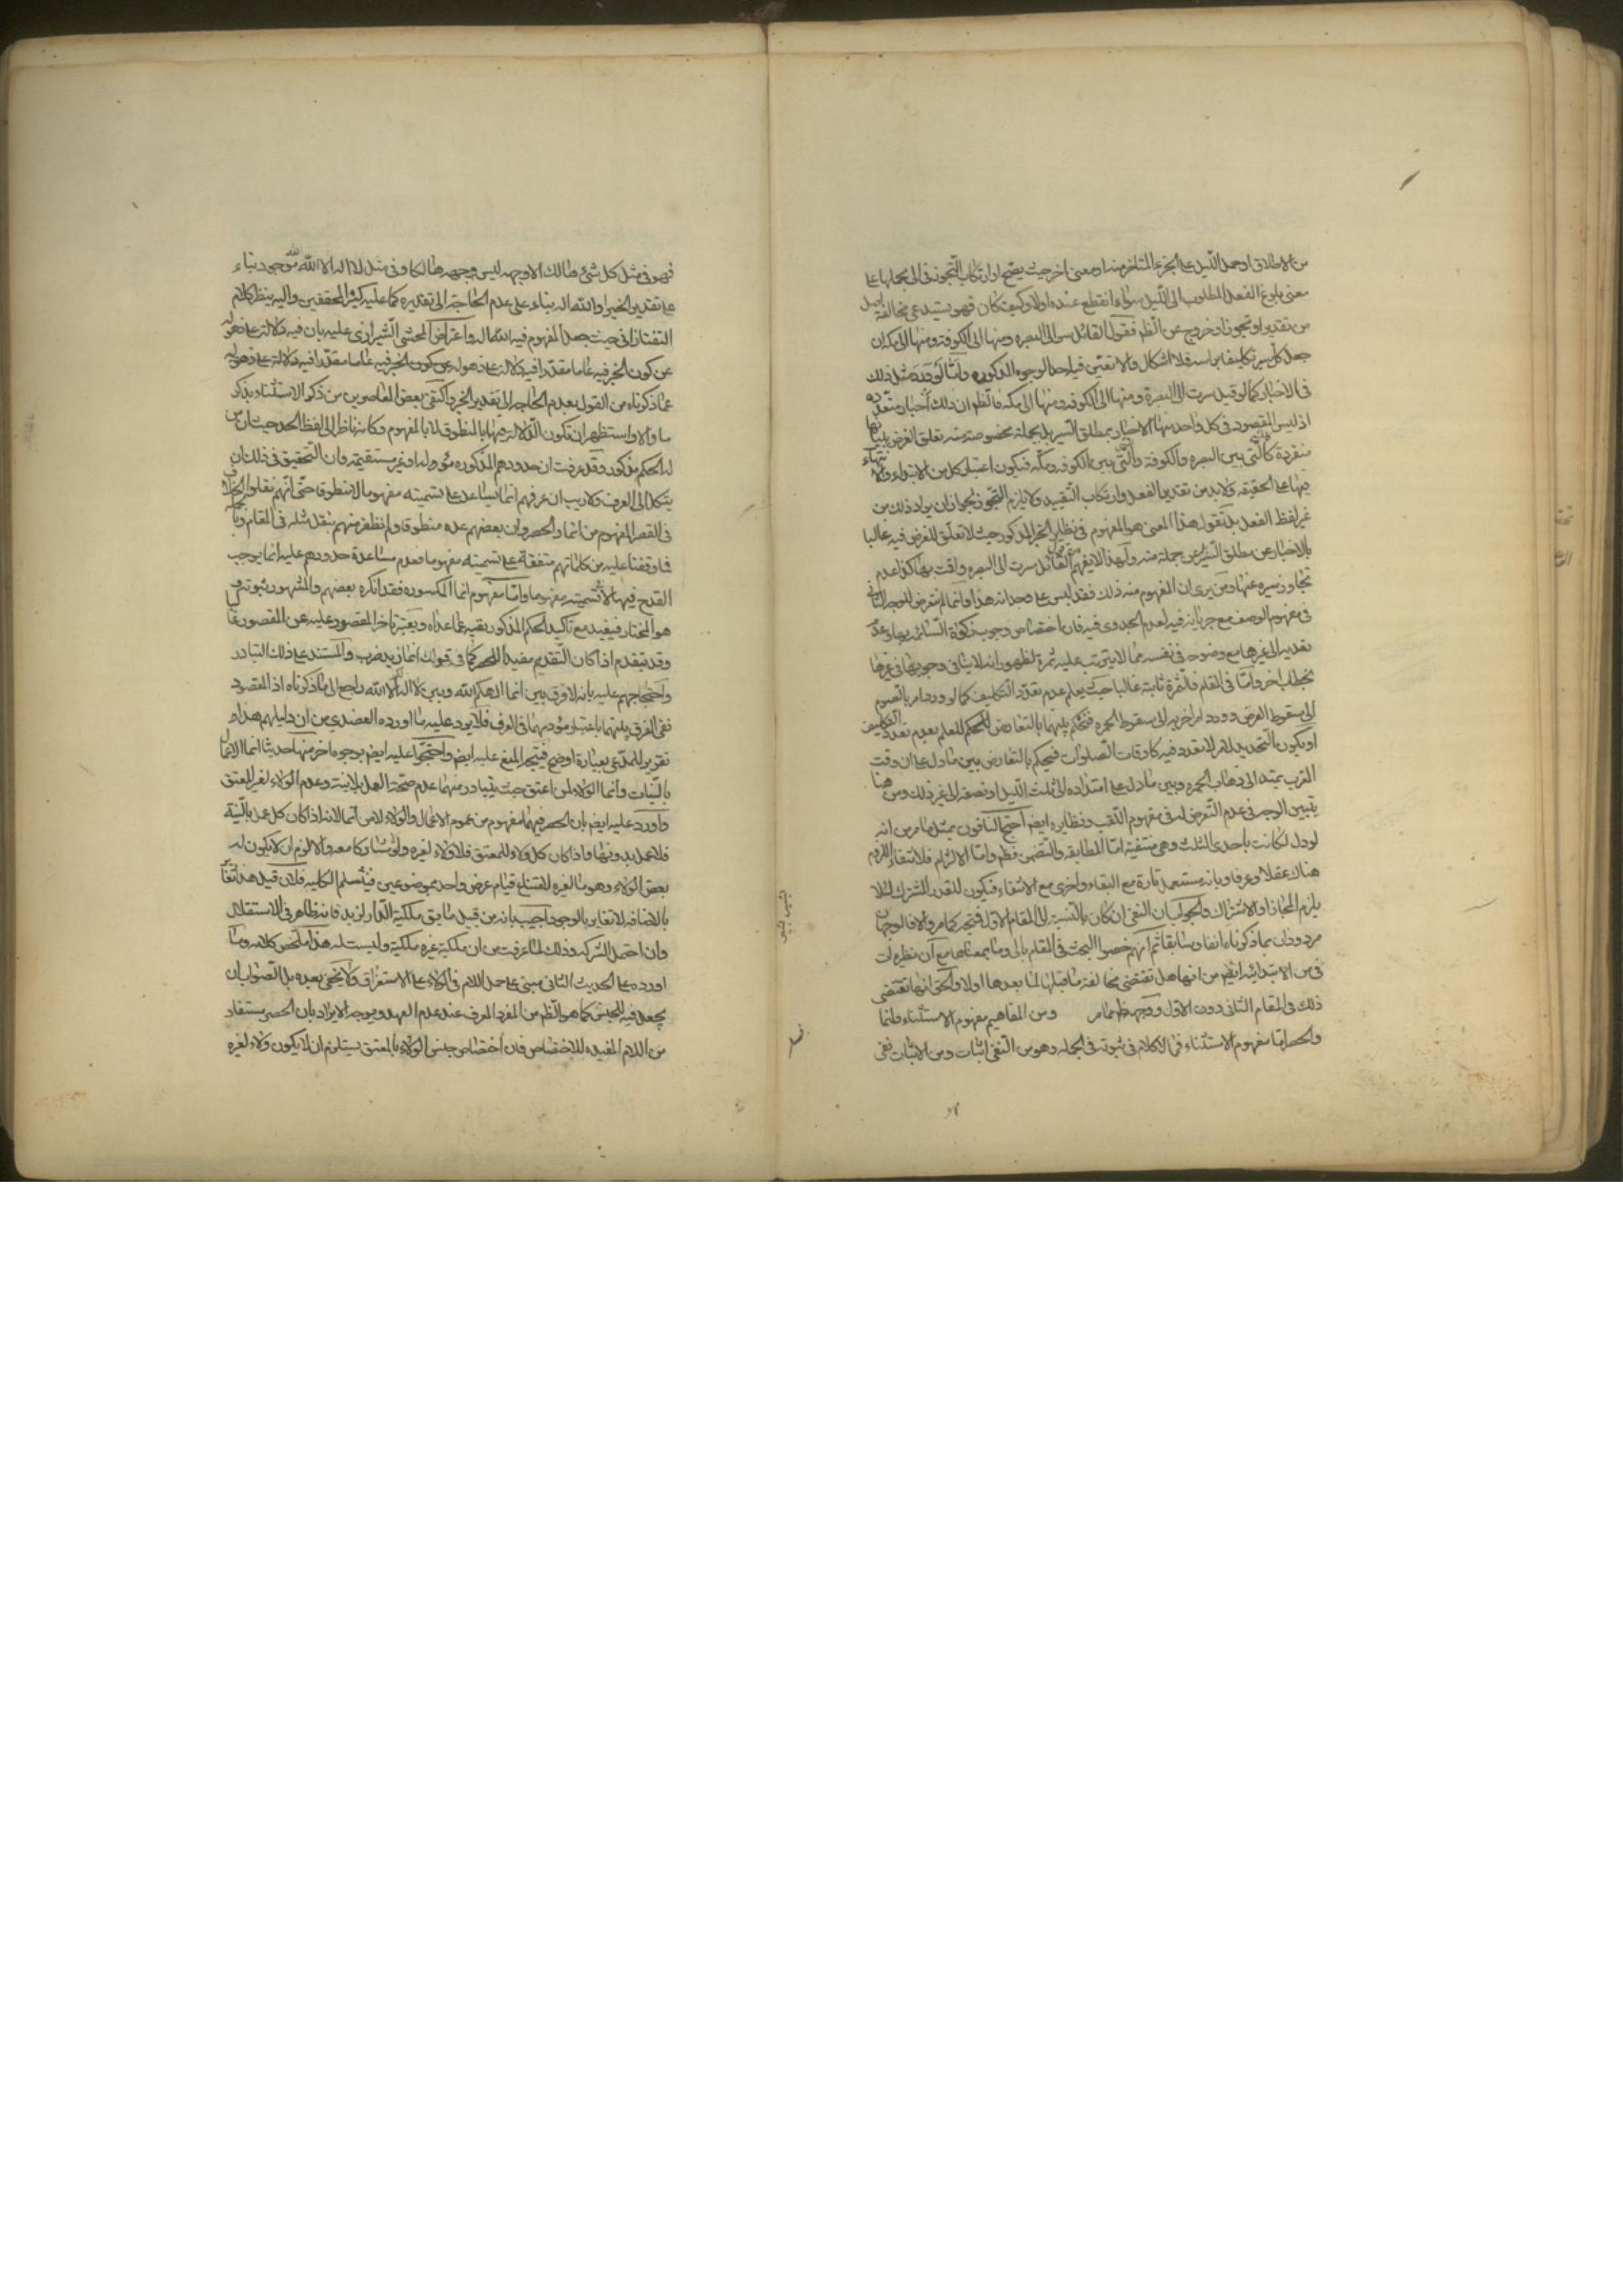 من الاطلاق او حمل الليل على الجزء المتاخر منه او معنى اخر حيث يصح او ارتكاب التجوز في الى بحملها على
معنى بلوغ الفعل المطلوب الى الليل سواء انقطع عنده اولا وكيف كان فهو يستدعي مخالفة اصل
من تقدير او تجوز او خروج عن الظم فقول القائل سر الى البصره ومنها الى الكوفه ومنها الى مكه ان
جعل كل سير تكليفا براسه فلا اشكال والا تعين فيه احد الوجوه المذكوره واما لو وقع مثل ذلك
في الاخبار كما لو قيل سرت الى البصرة ومنها الى الكوفه ومنها الى مكه فالظم ان ذلك اخبار متعدده
اذ ليس المقصود في كل واحد منها الاخبار بمطلق السير بل بجملة مخصوصة منه تعلق الغرض ببيانها
منفردة كالتي بين البصره والكوفة والتي بين الكوفه ومكه فيكون اعتبار كل من الابتداء والانتهاء
فيها على الحقيقه ولا بد من تقدير الفعل وارتكاب التقييد ولا يلزم التجوز لجواز ان يراد ذلك من
غير لفظ الفعل بل نقول هذا المعنى هو المفهوم في نظاير الخبر المذكور حيث لا تعلق للغرض فيه غالبا
بالاخبار عن مطلق السير بل عن جملة منه ولهذا لا يفهم من قول القائل سرت الى البصره واقت بها كذا عدم
تجاوز سيره عنها ومن يرى ان المفهوم منه ذلك فقد لبس على وجدانه هذا وانما لم نتعرض للوجه الثاني
في مفهوم الوصف مع جريانه فيه لعدم الجدوى فيه فان اختصاص وجوب زكوة السائمه بها وعدم
تعديه الى غيرها مع وضوحه في نفسه مما لا يترتب عليه ثمرة لظهور انه لا ينافي وجوبها في غيرها
بخطاب اخر واما في المقام فالثمرة ثابتة غالبا حيث يعلم عدم تعدد التكليف كما لو ورد امر بالصوم
الى سقوط القرص وورد امر اخر به الى سقوط الحمره فنحكم بينهما بالتعارض للحكم للعلم بعدم تعدد التكليف
او يكون التحديد لامر لا تعدد فيه كاوقات الصلوات فنحكم بالتعارض بين ما دل على ان وقت
المغرب يمتد الى ذهاب الحمره وبين ما دل على امتداده الى ثلث الليل او نصفه الى غير ذلك ومن هنا
يتبين الوجه في عدم التعرض له في مفهوم اللقب ونظايره ايض احتج النافون بمثل ما مر من انه
لو دل لكانت باحدى الثلث وهي منتفيه اما المطابقه والتضمن فظم واما الالتزام فلانتفاء اللزوم
هناك عقلا وعرفا وبانه يستعمل تارة مع البقاء واخرى مع الانتفاء فيكون للقدر المشترك لئلا
يلزم المجاز او الاشتراك والجواب ان النفي ان كان بالنسبة الى المقام الاول فمتجه كما مر والا فالوجهان
مردودان بما ذكرناه انفا وسابقا ثم انهم خصوا البحث في المقام بالى وما بمعناها مع ان نظيره ات
في من الابتدائيه ايض من انها هل تقتضي مخالفة ما قبلها لما بعدها اولا والحق انها تقتضي
ذلك في المقام الثاني دون الاول ووجهه ظم مما مر ومن المفاهيم مفهوم الاستثناء وانما
والحصر اما مفهوم الاستثناء فمما لا كلام في ثبوته في الجمله وهو من النفي اثبات ومن الاثبات نفي
فهو في مثل كل شيء هالك الا وجهه ليس وجهه هالكا وفي مثل لا اله الا الله الله موجود بناء
على تقدير الخبر او الله اله بناء على عدم الحاجة الى تقديره كما عليه كثير المحققين واليه ينظر كلام
التفتازاني حيث جعل المفهوم فيه الله اله واعتراض المحشي الشيرازي عليه بان فيه دلالة على ذهوله
عن كون الخبر فيه عاما مقدرا فيه دلالة على ذهوله عن كون الخبر فيه عاما مقدرا فيه دلالة على ذهوله
عما ذكرناه من القول بعدم الحاجه الى تقدير الخبر واكتفى بعض المعاصرين من ذكر الاستثناء بذكر
ما والا واستظهر ان تكون الدلالة فيها بالمنطوق لا بالمفهوم وكانه ناظر الى لفظ الحد حيث ان من
له الحكم مذكور وقد عرفت ان حدودهم المذكوره مؤوله او غير مستقيمة وان التحقيق في ذلك ان
يتكل الى العرف ولا ريب ان عرفهم انما يساعد على تسميته مفهوما لا منطوقا حتى انهم نقلوا الخلاف
في القصر المفهوم من انما والحصر وان بعضهم عده منطوقا ولم نظفر منهم بنقل مثله في المقام وبالجمله
فما وقفنا عليه من كلماتهم متفقة على تسميته مفهوما فعدم مساعدة حدودهم عليه انما يوجب
القدح فيها لا تسميته مفهوما واما مفهوم انما المكسوره فقد انكره بعضهم والمشهور ثبوته و
هو المختار فيفيد مع تاكيد الحكم المذكور نفيه عما عداه ويعتبر تاخر المقصور عليه عن المقصور غالبا
وقد يتقدم اذا كان التقديم مفيدا للحصر كما في قولك انما زيد ضرب والمستند على ذلك التبادر
واحتجاجهم عليه بانه لا فرق بين انما الهكم الله وبين لا اله الا الله راجع الى ما ذكرناه اذ المقصود
نفي الفرق بينهما باعتبار مؤديهما في العرف فلا يرد عليه ما اورده العضدي من ان دليلهم هذا
تقرير للمدعى بعبارة اوضح فيتجه المنع عليه ايض واحتجوا عليه ايض بوجوه اخر منها حديثا انما الاعمال
بالنيات وانما الولاء لمن اعتق حيث يتبادر منهما عدم صحة العمل بلا نية وعدم الولاء لغير المعتق
واورد عليه ايض بان الحصر فيهما مفهوم من عموم الاعمال والولاء لا من انما لانه اذا كان كل عمل بالنية
فلا عمل بدونها واذا كان كل ولاء للمعتق فلا ولاء لغيره ولو مشاركا معه والا لزم ان لا يكون له
بعض الولاء وهو ما لغيره لامتناع قيام عرض واحد بموضوعين فيثلم الكليه فلان قيل هذا
بالاضافه لا تغاير بالوجود اجيب بانه من قبيل ما يق ملكية الدار لزيد فانه ظاهر في الاستقلال
وان احتمل الشركه وذلك لما عرفت من ان ملكية غيره ملكية وليست له هذا ملخص كلامه وما
اورده على الحديث الثاني مبني على حمل اللام في الولاء على الاستغراق ولا يخفى بعده بل الصواب ان
يجعل فيه للجنس كما هو الظم من المفرد المعرف عند عدم العهد ويوجه الايراد بان الحصر مستفاد
من اللام المفيده للاختصاص فان اختصاص جنس الولاء بالمعتق يستلزم ان لا يكون ولاء لغيره